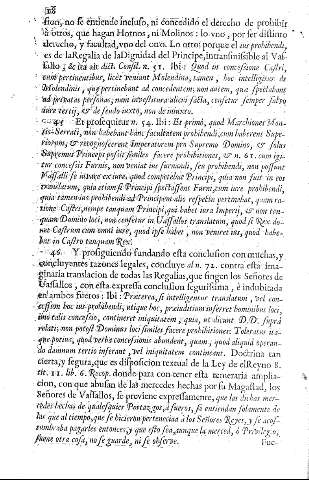 sion, no se entiende incluso, ni concedido el derecho de prohibir
à otros, que hagan Hornos, ni Molinos: lo vno, por ser distinto
derecho, y facultad, vno del otro. Lo otro: porque el ius prohibendi,
es de la Regalia de la Dignidad del Principe, intransmissible al Vas-
sallo; & ita ait dict. Consil. n. 51. Ibi: Quod in concessione Castri,
cum pertinentibus, licèt veniant Molendina, tamen, hoc intelligitur de
Molendinis, que pertinebant ad concedentem, non autem, que spectabant
ad privatas personas, nam investitura alicui facta, censetur semper salvo
iure tertij, & de feudo iuxto, non de iniuxto.
45 Et prosequitur n. 54. Ibi: Et primò, quod Marchiones Mon-
tis-Serrati, non habebant hanc facultatem prohibendi, cum haberent Supe-
riorem, & recognoscerent Imperatorem pro Supremo Domino, & solus
Supremus Princeps possit similes facere prohibitiones, & n. 61. cum igi-
tur concessis Furnis, non veniat ius furnandi, seu prohibendi, non possunt
Vassalli se iuvare ex iure, quod competebat Principi, quia non fuit in eos
translatum, quia etiam si Principi spectassent Furni, cum iure prohibendi,
quia tamen ius prohibendi ad Principem alis respectu pertinebat, quam ra-
tione Castri, nempe tanquam Principi, qui habet iura Imperij, & non tan-
quam Domino loci, non censetur in Vassallum translatum, quod si Rex do-
net Castrum cum omni iure, quod ipse habet, non veniet ius, quod habe-
bat in Castro tanquam Rex.
46 Y prosiguiendo fundando esta conclusion con muchas, y
concluyentes razones legales, concluye al n. 72. contra esta ima-
ginaria translacion de todas las Regalias, que fingen los Señores de
Vassallos, con esta expressa conclusion segurissima, è indubitada
en ambos fueros: Ibi: Præterea, si intelligeretur translatum, vel con-
cessum hoc ius prohibendi, utique hoc, præiudicium inferret hominibus loci,
imò talis concessio, contineret iniquitatem; quia, ut dicunt D.D. suprà
relati, non potest Dominus loci similes facere prohibitiones: Tolerare
que potius, quod verba concessionis abundent, quam, quod aliquid operan-
do damnum tertio inferant, vel iniquitatem contineant. Doctrina tan
cierta, y segura, que es disposicion textual de la Ley del Reyno 8.
tit. 11. lib. 6. Recop. donde para contener esta temeraria amplia-
cion, con que abusan de las mercedes hechas por su Magestad, los
Señores de Vassallos, se previene expressamente, que las dichas mer-
cedes hechas de qualesquier Portazgos, ò fueros, se entiendan solamente de
los que al tiempo, que se hizieron pertenecian à los Señores Reyes, y se acos-
tumbraba pagarles entonces, y que esto sea, aunque la merced, ò Privilegio,
suene otra cosa, no se guarde, ni se observe.